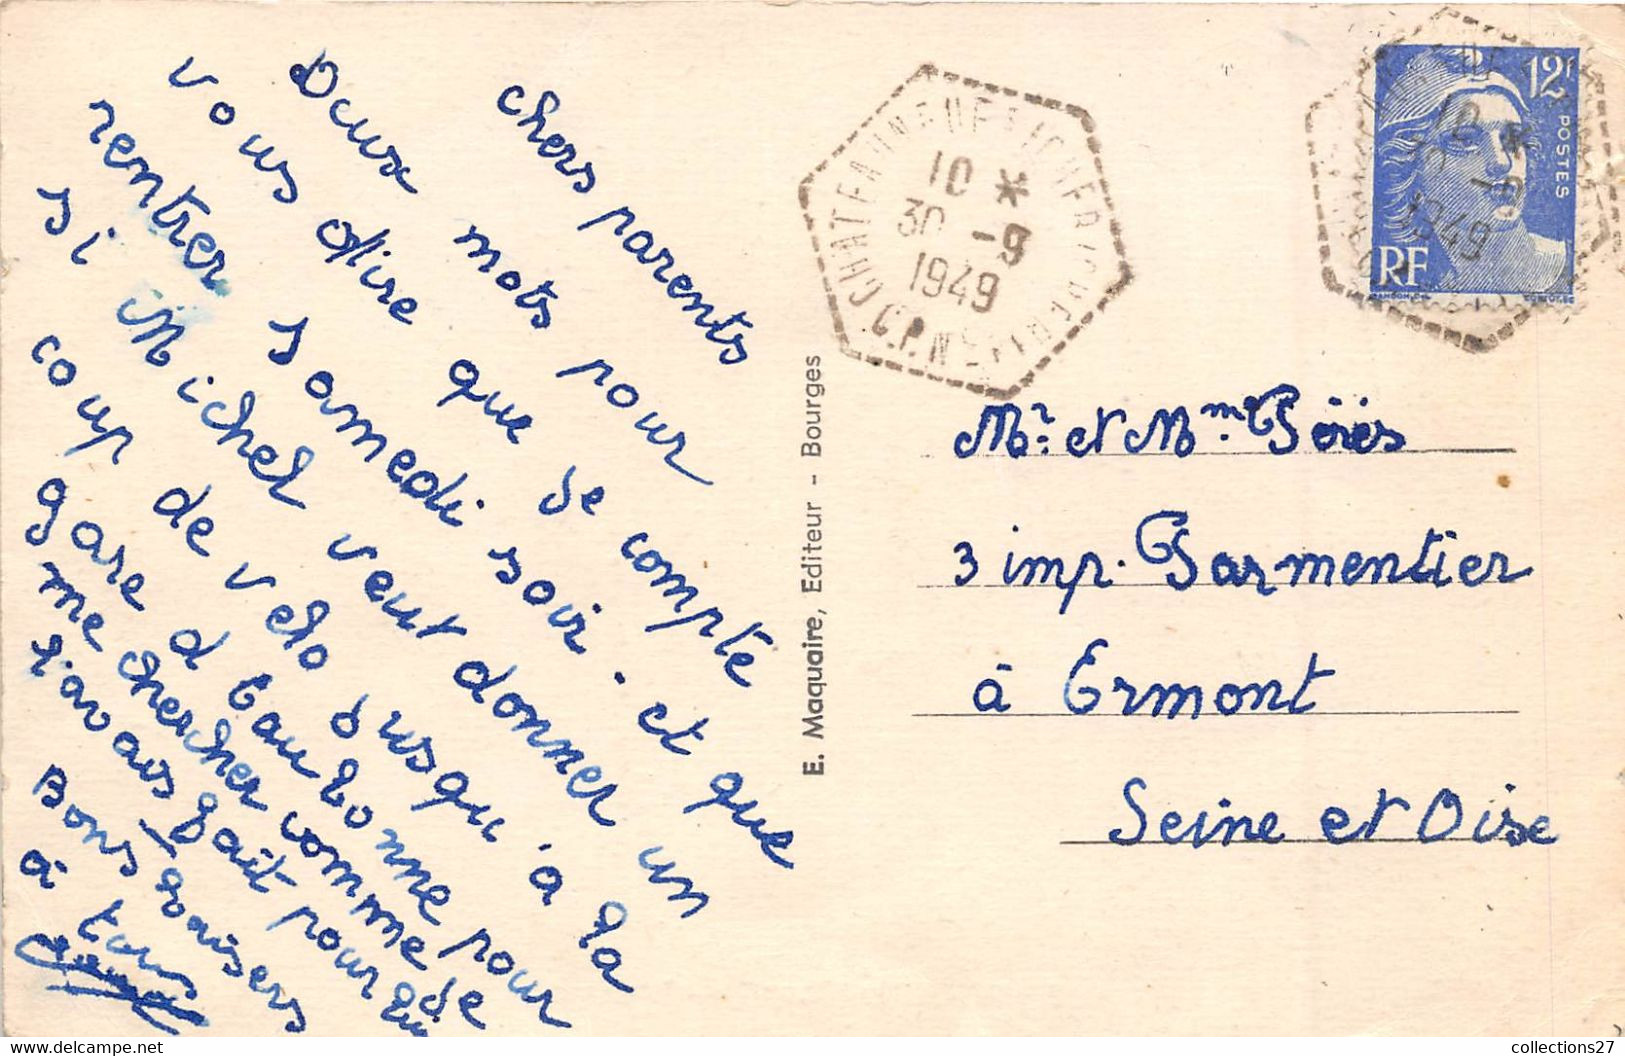 chers parents
Deux mots pour
vous dire que je compte
rentrer samedi soir. et que
si Michel veut donner un
coup de velo jusqu'à la
gare d'Eaubonne pour
me chercher comme je
l'avais fait pour lui
Bons baisers
à tous
E. Maquaire, Editeur - Bourges
10 *
30 -9
1949
12F
POSTES
RF
10 *
30 -9
1949
Mr. et Mme
3 imp. Parmentier
à Ermont
Seine et Oise
collections27